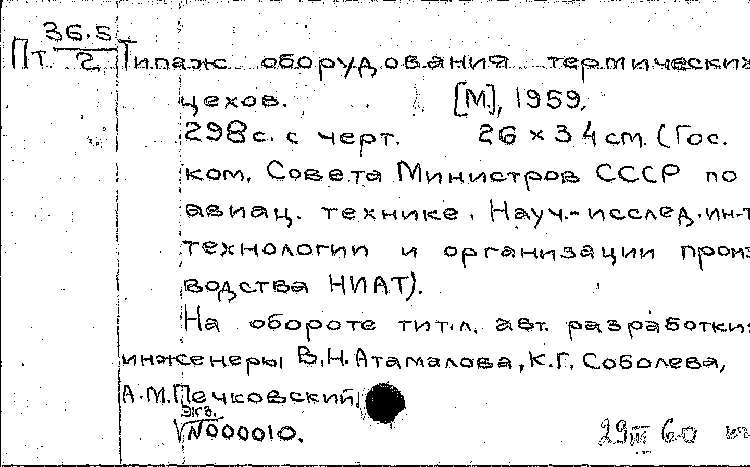 36.5
Пт. 2 Типаж оборудования термических
цехов. [М], 1959.
298 с. с черт. 26 × 34 см. (Гос.
ком. Совета Министров СССР по
авиац. технике. Науч.-исслед. ин-т
технологии и организации произ
водства НИАТ).
На обороте тит. л. авт. разработки:
инженеры В.Н. Атамалова, К.Г. Соболева,
А.М. Печковский.
экз.
№000010.
29 III 60